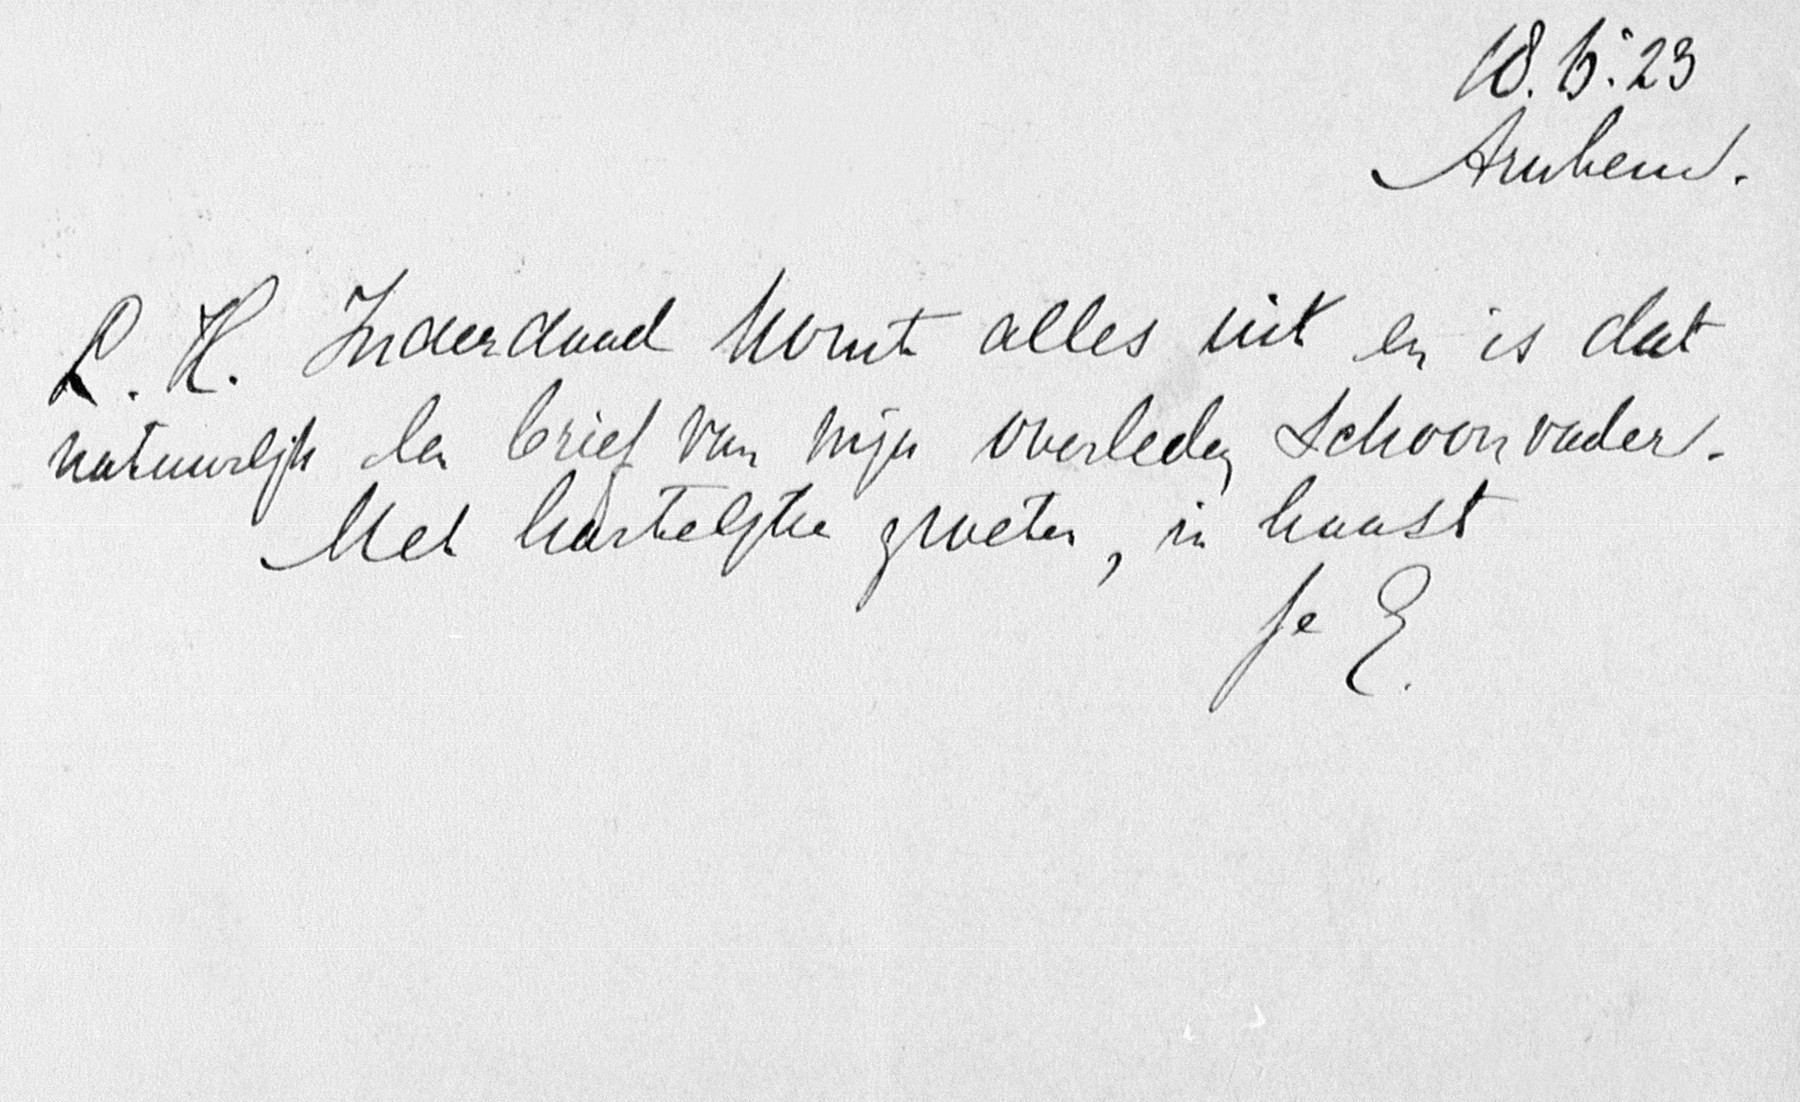 18.6.'23
Arnhem.
L. H. Inderdaad komt alles uit en is dat
natuurlijk de brief van mijn overleden schoonvader.
Met hartelijke groeten, in haast
je E.